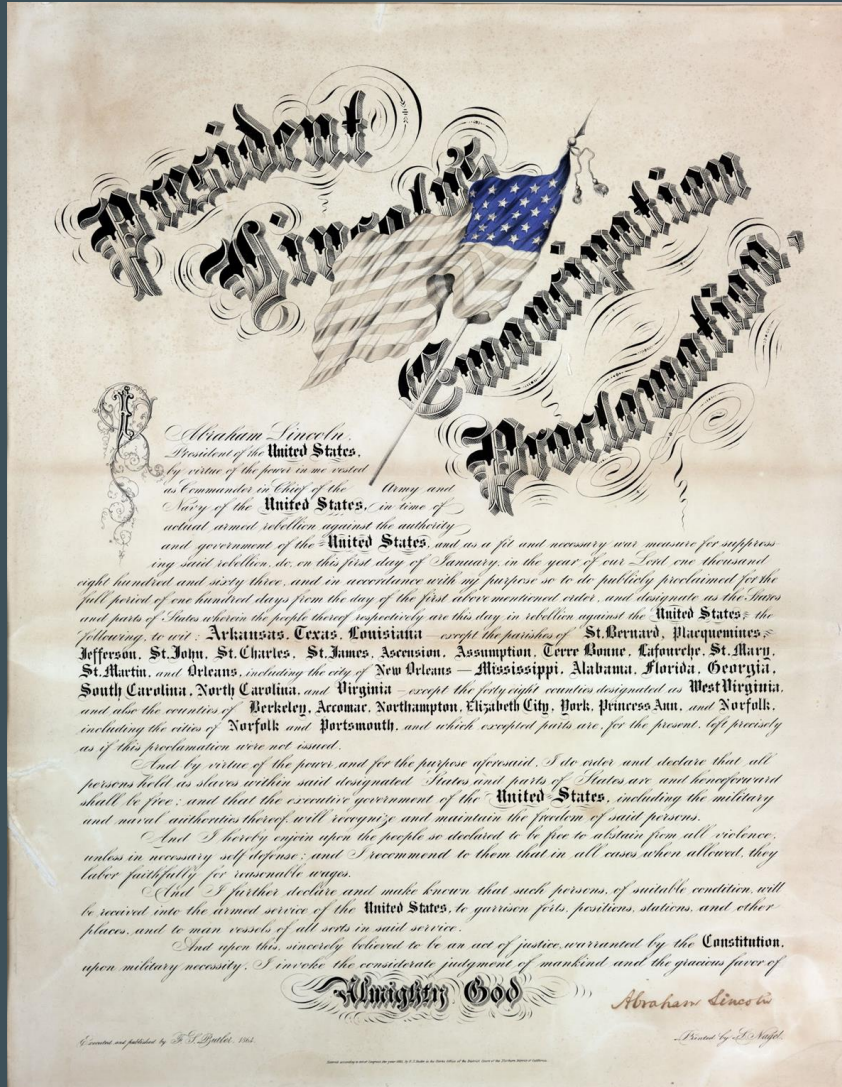 President
Lincoln's
Emancipation
Proclamation.
I
Abraham Lincoln,
President of the United States,
by virtue of the power in me vested
as Commander in Chief of the Army and
Navy of the United States, in time of
actual armed rebellion against the authority
and government of the United States, and as a fit and necessary war measure for suppress-
ing said rebellion, do, on this first day of January, in the year of our Lord one thousand
eight hundred and sixty three, and in accordance with my purpose so to do publicly proclaimed for the
full period of one hundred days from the day of the first above mentioned order, and designate as the States
and parts of States wherein the people thereof respectively are this day in rebellion against the United States, the
following, to wit: Arkansas, Texas, Louisiana – except the parishes of St. Bernard, Placquemines,
Jefferson, St. John, St. Charles, St. James, Ascension, Assumption, Terre Bonne, Lafourche, St. Mary,
St. Martin, and Orleans, including the city of New Orleans — Mississippi, Alabama, Florida, Georgia,
South Carolina, North Carolina, and Virginia – except the forty eight counties designated as West Virginia,
and also the counties of Berkeley, Accomac, Northampton, Elizabeth City, York, Princess Ann, and Norfolk,
including the cities of Norfolk and Portsmouth, and which excepted parts are, for the present, left precisely
as if this proclamation were not issued.
And by virtue of the power, and for the purpose aforesaid, I do order and declare that all
persons held as slaves within said designated States and parts of States are and henceforward
shall be free; and that the executive government of the United States, including the military
and naval authorities thereof, will recognize and maintain the freedom of said persons.
And I hereby enjoin upon the people so declared to be free to abstain from all violence,
unless in necessary self defense; and I recommend to them that in all cases when allowed, they
labor faithfully for reasonable wages.
And I further declare and make known that such persons, of suitable condition, will
be received into the armed service of the United States, to garrison forts, positions, stations, and other
places, and to man vessels of all sorts in said service.
And upon this, sincerely believed to be an act of justice, warranted by the Constitution,
upon military necessity, I invoke the considerate judgment of mankind and the gracious favor of
Almighty God
Abraham Lincoln
Executed and published by F. S. Butler, 1864.
Printed by L. Nagel.